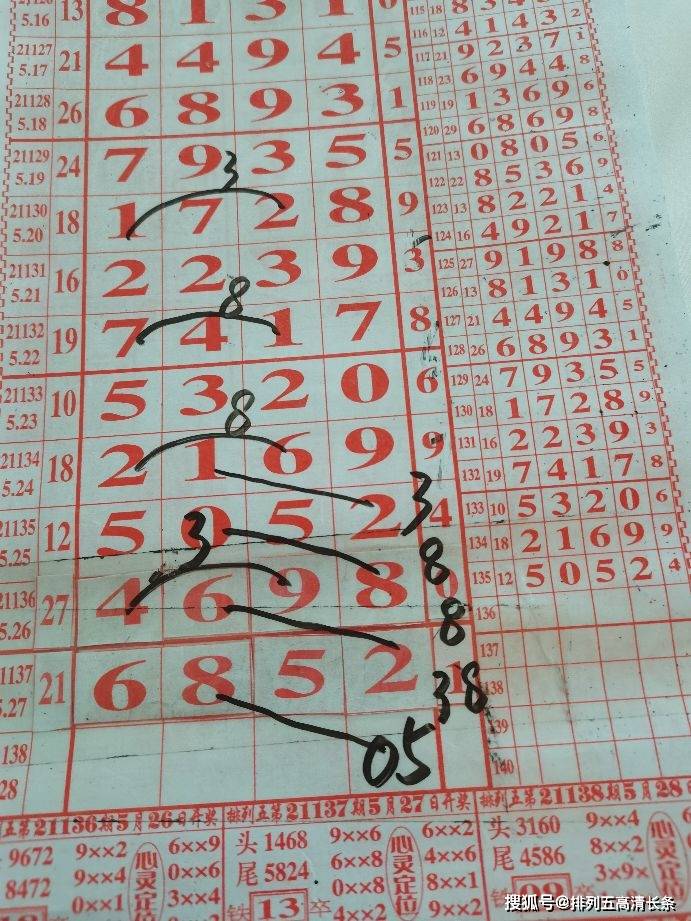 5.16 13 8 1 3 1 0
21127 5.17 21 4 4 9 4 5
21128 5.18 26 6 8 9 3 1
21129 5.19 24 7 9 3 5 5
3
21130 5.20 18 1 7 2 8 9
21131 5.21 16 2 2 3 9 3
8
21132 5.22 19 7 4 1 7 8
21133 5.23 10 5 3 2 0 6
8
21134 5.24 18 2 1 6 9 9
3
21135 5.25 12 5 0 5 2 4
3
8
21136 5.26 27 4 6 9 8 0
8
21137 5.27 21 6 8 5 2 1
38
138
28
05
115 18 8 3 4
116 12 4 1 4 3 2
117 21 9 2 3 7 1
118 23 6 9 4 4 8
119 19 1 3 6 9 6
120 29 6 8 6 9 8
121 13 0 8 0 5 6
122 22 8 5 3 6 9
123 13 8 2 2 1 4
124 16 4 9 2 1 7
125 27 9 1 9 8 8
126 13 8 1 3 1 0
127 21 4 4 9 4 5
128 26 6 8 9 3 1
129 24 7 9 3 5 5
130 18 1 7 2 8 9
131 16 2 2 3 9 3
132 19 7 4 1 7 8
133 10 5 3 2 0 6
134 18 2 1 6 9 9
135 12 5 0 5 2 4
136
137
138
139
140
五第21136期5月26日开奖 排列五第21137期5月27日开奖 排列五第21138期5月28日
9672 9××2 6××9 头 1468 9××6 6××2 头 3160 9××4 6××
8472 9××4 0××6 尾 5824 6××8 4××6 尾 4586 8××2
心灵定位 心灵定位 心灵定位
9××1 3××4 13 卒 0××8 8××1 3×9×
4×2× 9××2
搜狐号@排列五高清长条